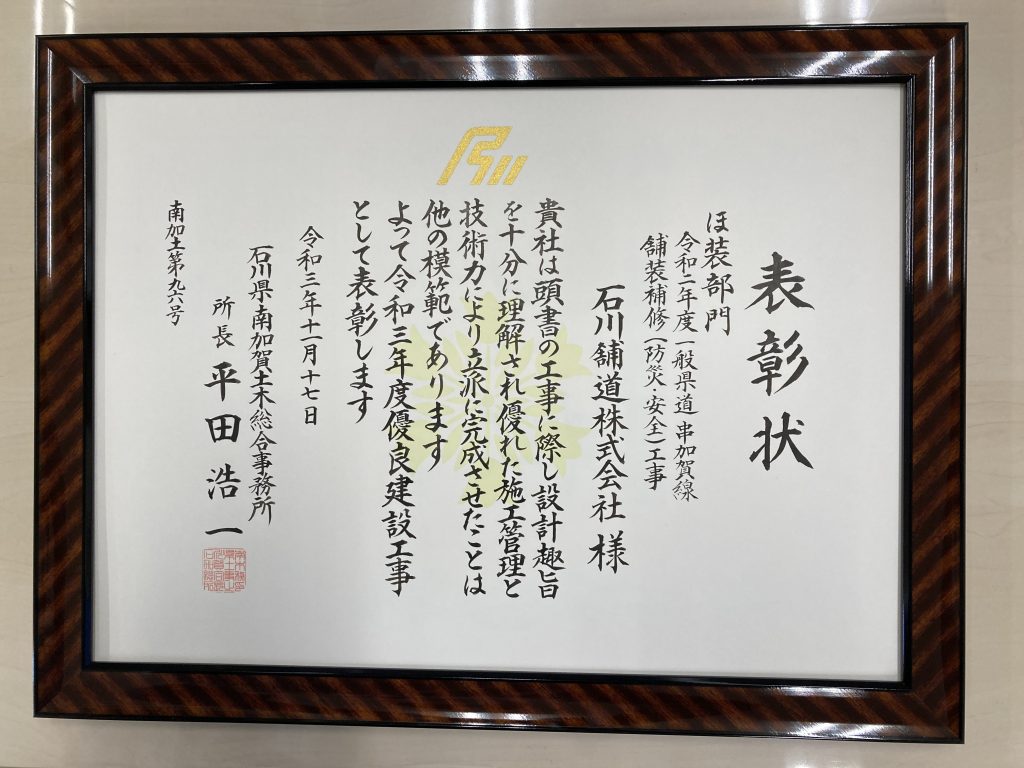 表彰状
ほ装部門
令和二年度 一般県道 串加賀線
舗装補修(防災・安全)工事
石川舗道株式会社 様
貴社は頭書の工事に際し設計趣旨
を十分に理解され優れた施工管理と
技術力により立派に完成させたことは
他の模範であります
よって令和三年度優良建設工事
として表彰します
令和三年十一月十七日
石川県南加賀土木総合事務所
所長 平田浩一
南加土第九六号